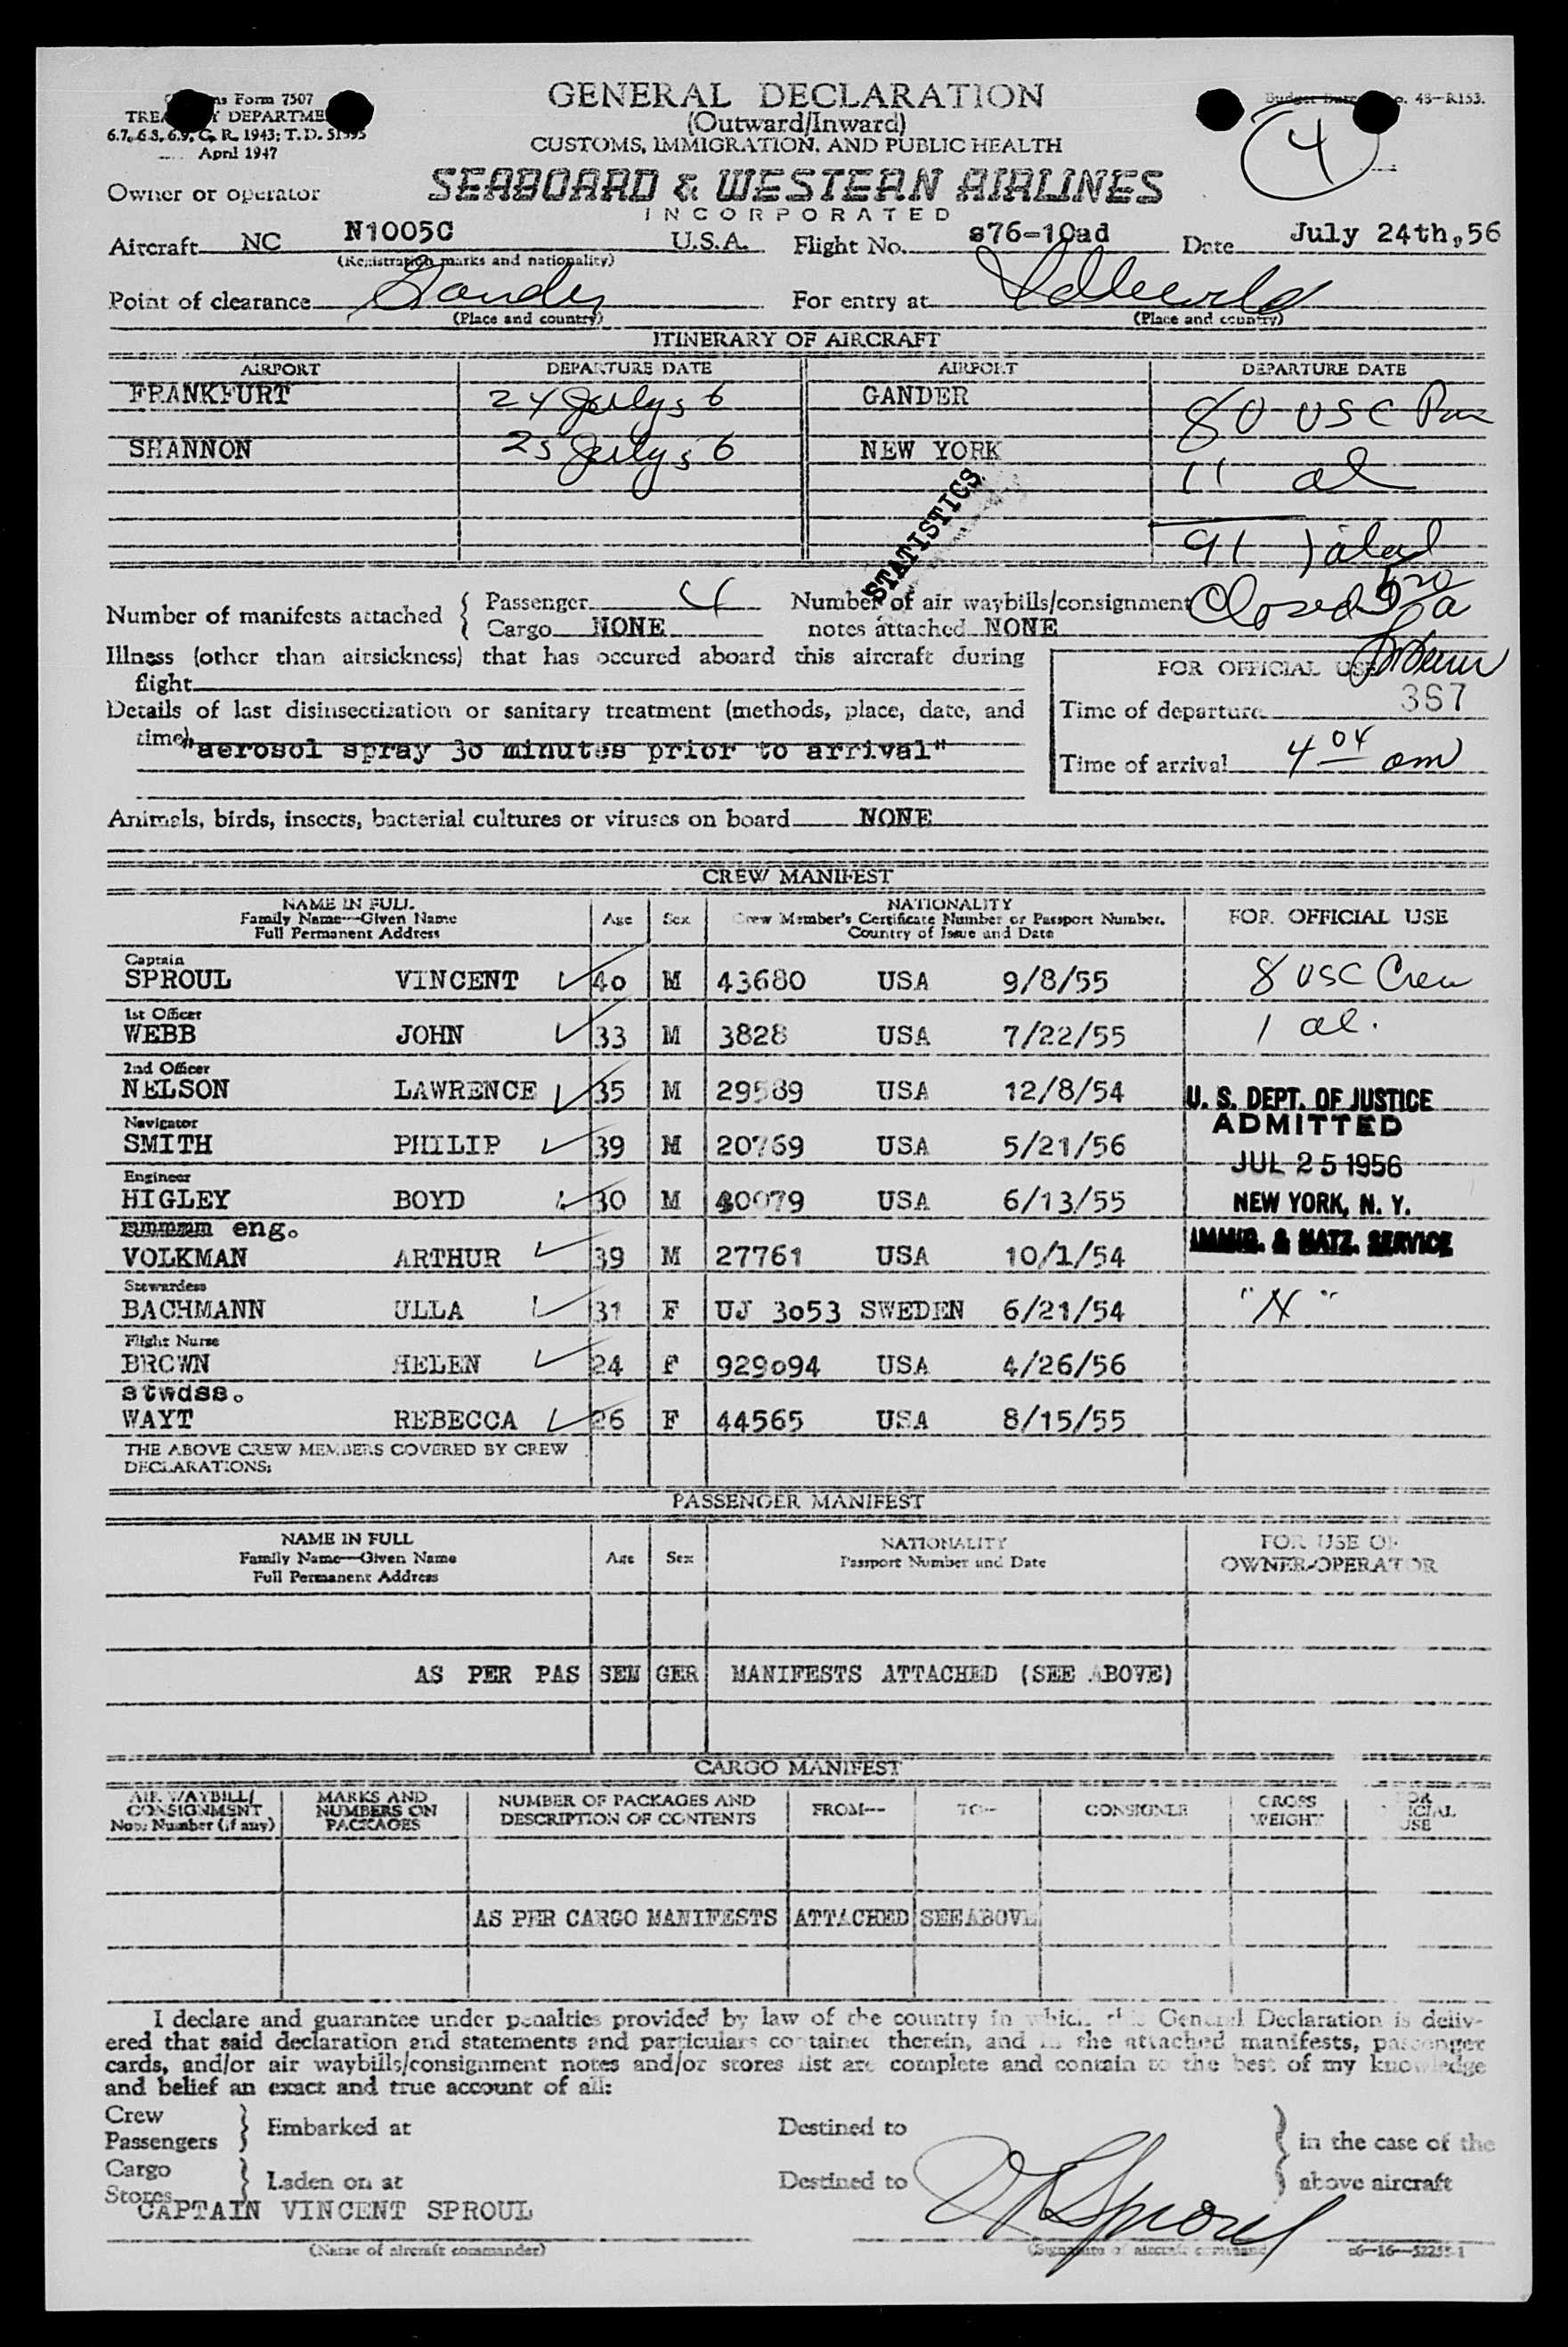 Form 7507
GENERAL DECLARATION
(Outward/Inward)
CUSTOMS, IMMIGRATION, AND PUBLIC HEALTH
6.7, 6.8, 6.9, C. R. 1943; T. D.
April 1947
48-R153.
4
Owner or operator
SEABOARD & WESTERN AIRLINES
INCORPORATED
Aircraft NC N1005C U.S.A. Flight No. s76-10ad Date July 24th,56
(Registration marks and nationality)
Point of clearance Gander For entry at Idlewild
(Place and country) (Place and country)
ITINERARY OF AIRCRAFT
AIRPORT DEPARTURE DATE AIRPORT DEPARTURE DATE
FRANKFURT 24 July 56 GANDER 80 USC Pax
SHANNON 25 July 56 NEW YORK 11 al
91 total
STATISTICS
Closed
Number of manifests attached { Passenger 4 Number of air waybills/consignment
Cargo NONE notes attached NONE
Illness (other than airsickness) that has occured aboard this aircraft during
flight
FOR OFFICIAL USE
367
Details of last disinsectization or sanitary treatment (methods, place, date, and
time) "aerosol spray 30 minutes prior to arrival"
Time of departure
Time of arrival 4 04 am
Animals, birds, insects, bacterial cultures or viruses on board NONE
CREW MANIFEST
NAME IN FULL
Family Name—Given Name
Full Permanent Address
Age Sex
NATIONALITY
Crew Member's Certificate Number or Passport Number.
Country of Issue and Date
FOR OFFICIAL USE
Captain
SPROUL VINCENT 40 M 43680 USA 9/8/55 8 USC Crew
1st Officer
WEBB JOHN 33 M 3828 USA 7/22/55 1 al.
2nd Officer
NELSON LAWRENCE 35 M 29589 USA 12/8/54
Navigator
SMITH PHILIP 39 M 20769 USA 5/21/56
Engineer
HIGLEY BOYD 30 M 30079 USA 6/13/55
eng.
VOLKMAN ARTHUR 39 M 27761 USA 10/1/54
Stewardess
BACHMANN ULLA 31 F UJ 3053 SWEDEN 6/21/54 "X"
Flight Nurse
BROWN HELEN 24 F 929094 USA 4/26/56
stwdss.
WAYT REBECCA 26 F 44565 USA 8/15/55
U. S. DEPT. OF JUSTICE
ADMITTED
JUL 25 1956
NEW YORK, N. Y.
IMMIG. & NATZ. SERVICE
THE ABOVE CREW MEMBERS COVERED BY CREW
DECLARATIONS;
PASSENGER MANIFEST
NAME IN FULL
Family Name—Given Name
Full Permanent Address
Age Sex
NATIONALITY
Passport Number and Date
FOR USE OF
OWNER-OPERATOR
AS PER PASSENGER MANIFESTS ATTACHED (SEE ABOVE)
CARGO MANIFEST
AIR WAYBILL/
CONSIGNMENT
Note Number (if any)
MARKS AND
NUMBERS ON
PACKAGES
NUMBER OF PACKAGES AND
DESCRIPTION OF CONTENTS
FROM--- TO-- CONSIGNEE
GROSS
WEIGHT
FOR
OFFICIAL
USE
AS PER CARGO MANIFESTS ATTACHED SEE ABOVE
I declare and guarantee under penalties provided by law of the country in which this General Declaration is deliv-
ered that said declaration and statements and particulars contained therein, and in the attached manifests, passenger
cards, and/or air waybills/consignment notes and/or stores list are complete and contain to the best of my knowledge
and belief an exact and true account of all:
Crew
Passengers } Embarked at Destined to } in the case of the
Cargo
Stores } Laden on at Destined to } above aircraft
CAPTAIN VINCENT SPROUL
V Sproul
(Name of aircraft commander) (Signature of aircraft command